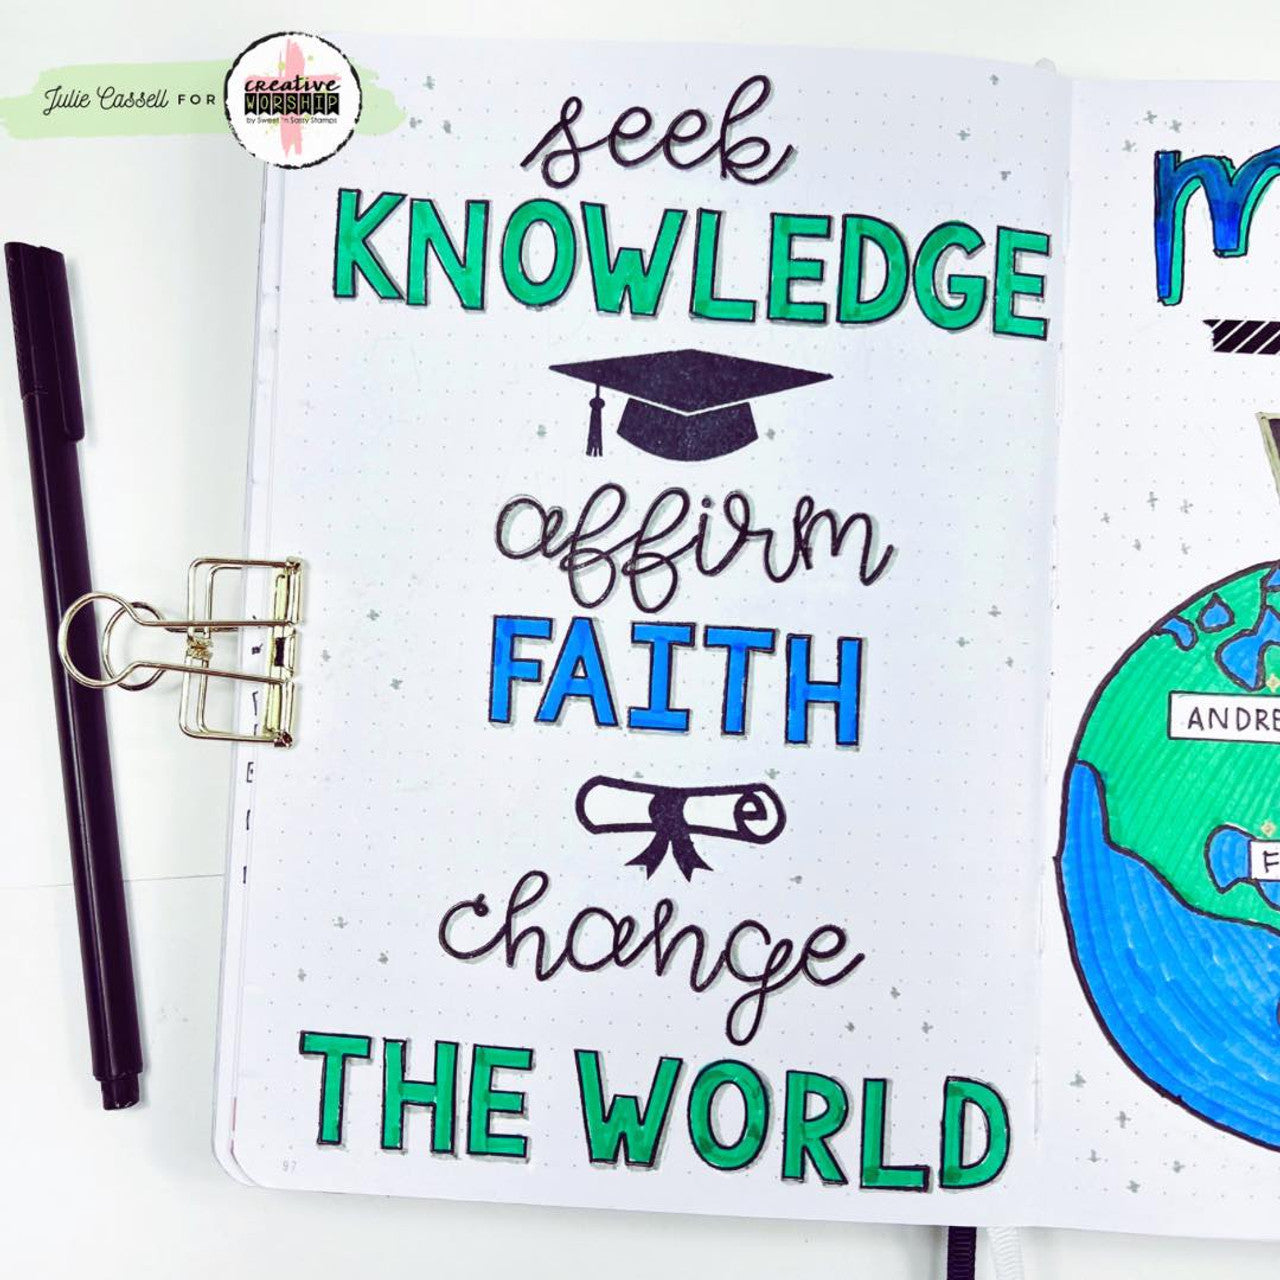 Julie Cassell FOR
creative
WORSHIP
by Sweet 'n Sassy Stamps
seek
KNOWLEDGE
affirm
FAITH
change
THE WORLD
97
m
ANDRE
F